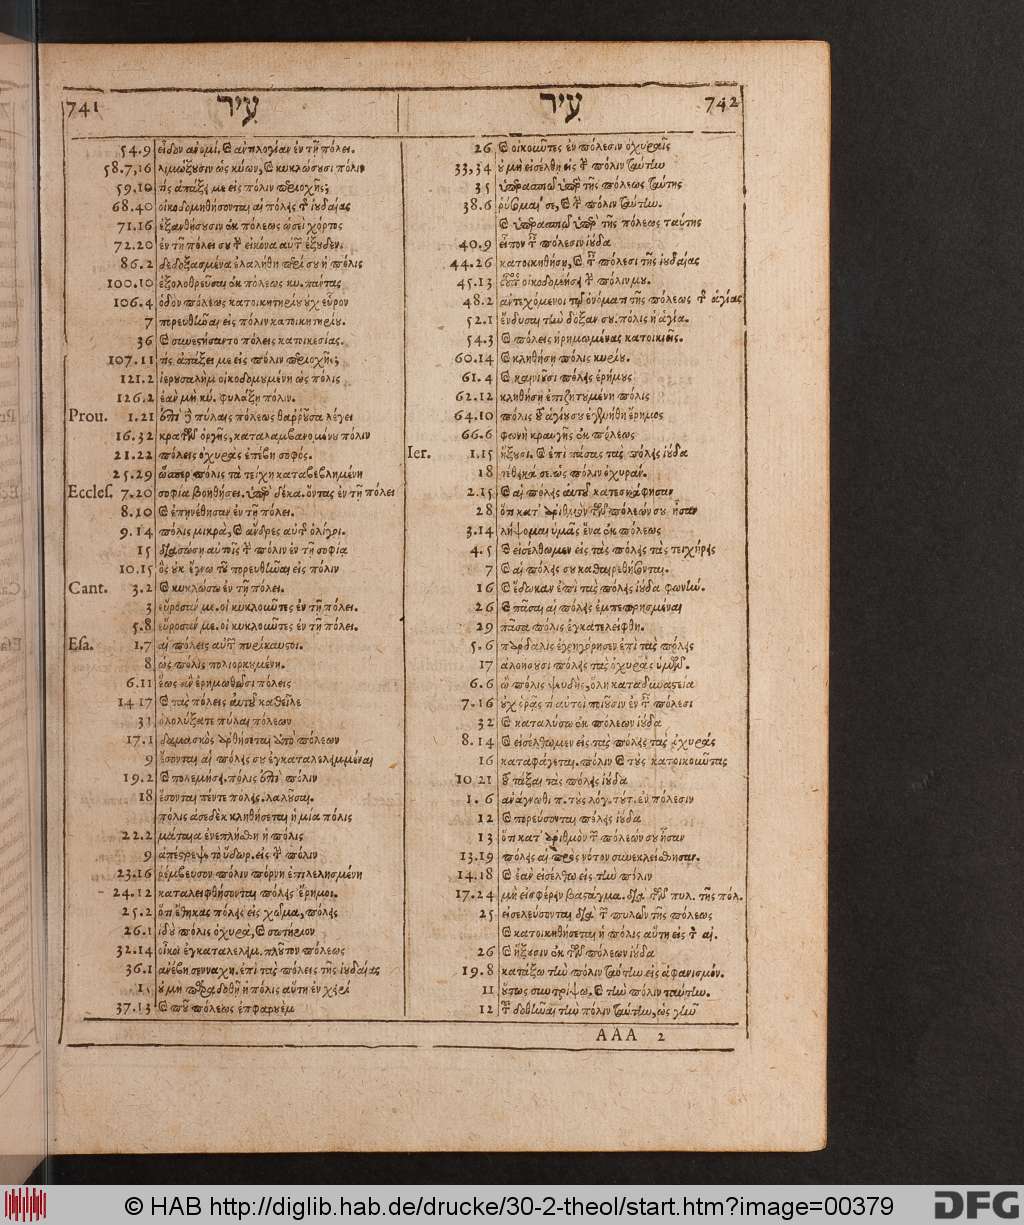 741 עִיר
54.9 εἶδον ἀνομί. ϗ ἀντιλογίαν ἐν τῇ πόλει.
58.7,16 λιμώξουσιν ὡς κύων, ϗ κυκλώσουσι πόλιν
59.10 τίς ἀπάξει με εἰς πόλιν περιοχῆς;
68.40 οἰκοδομηθήσονται αἱ πόλεις τῆς ἰουδαίας
71.16 ἐξανθήσουσιν ἐκ πόλεως ὡσεὶ χόρτος
72.20 ἐν τῇ πόλει σου τὴν εἰκόνα αὐτῶν ἐξουδεν.
86.2 δεδοξασμένα ἐλαλήθη περί σου ἡ πόλις
100.10 ἐξολοθρεῦσαι ἐκ πόλεως κυ. πάντας
106.4 ὁδὸν πόλεως κατοικητηρίου οὐχ εὗρον
7 πορευθῆναι εἰς πόλιν κατοικητηρίου.
36 ϗ συνεστήσαντο πόλεις κατοικεσίας.
107.11 τίς ἀπάξει με εἰς πόλιν περιοχῆς;
121.2 ἱερουσαλὴμ οἰκοδομουμένη ὡς πόλις
126.2 ἐὰν μὴ κύ. φυλάξῃ πόλιν.
Prou. 1.21 ἐπὶ δὲ πύλαις πόλεως θαῤῥοῦσα λέγει
16.32 κρατῶν ὀργῆς, καταλαμβανομένου πόλιν
21.22 πόλεις ὀχυρὰς ἐπέβη σοφός.
25.29 ὥσπερ πόλις τὰ τείχη καταβεβλημένη
Eccles. 7.20 σοφία βοηθήσει. ὑπὲρ δέκα. ὄντας ἐν τῇ πόλει
8.10 ϗ ἐπηνέθησαν ἐν τῇ πόλει.
9.14 πόλις μικρὰ, ϗ ἄνδρες αὐτῇ ὀλίγοι.
15 διασώσῃ αὐτὸς τὴν πόλιν ἐν τῇ σοφίᾳ
10.15 ὃς οὐκ ἔγνω τοῦ πορευθῆναι εἰς πόλιν
Cant. 3.2 ϗ κυκλώσω ἐν τῇ πόλει.
3 εὕροσάν με. οἱ κυκλοῦντες ἐν τῇ πόλει.
5.8 εὕροσάν με. οἱ κυκλοῦντες ἐν τῇ πόλει.
Esa. 1.7 αἱ πόλεις αὐτῶν πυρίκαυστοι.
8 ὡς πόλις πολιορκουμένη.
6.11 ἕως ἂν ἐρημωθῶσι πόλεις
14 17 ϗ τὰς πόλεις αὐτοῦ καθεῖλε
31 ὀλολύξατε πύλαι πόλεων
17.1 δαμασκὸς ἀρθήσεται ἀπὸ πόλεων
9 ἔσονται αἱ πόλεις σου ἐγκαταλελειμμέναι
19.2 ϗ πολεμήσει. πόλις ἐπὶ πόλιν
18 ἔσονται πέντε πόλεις. λαλοῦσαι.
πόλις ἀσεδὲκ κληθήσεται ἡ μία πόλις
22.2 μάταια ἐνεπλήσθη ἡ πόλις
9 ἀπέστρεψε τὸ ὕδωρ. εἰς τὴν πόλιν
23.16 ῥέμβευσον πόλιν πόρνη ἐπιλελησμένη
24.12 καταλειφθήσονται πόλεις ἔρημοι.
25.2 ὅτι ἔθηκας πόλεις εἰς χῶμα, πόλεις
26.1 ἰδοὺ πόλις ὀχυρά, ϗ σωτήριον
32.14 οἶκοι ἐγκαταλελειμ. πλοῦτον πόλεως
36.1 ἀνέβη σενναχη. ἐπὶ τὰς πόλεις τῆς ἰουδαίας
15 οὐ μὴ παραδοθῇ ἡ πόλις αὕτη ἐν χειρὶ
37.13 ϗ ποῦ πόλεως ἐπφαρουὲμ
עִיר 742
26 ϗ οἰκοῦντες ἐν πόλεσιν ὀχυραῖς
33,34 οὐ μὴ εἰσέλθῃ εἰς τὴν πόλιν ταύτην
35 ὑπερασπιῶ ὑπὲρ τῆς πόλεως ταύτης
38.6 ῥύσομαί σε, ϗ τὴν πόλιν ταύτην.
ϗ ὑπερασπιῶ ὑπὲρ τῆς πόλεως ταύτης
40.9 εἶπον ταῖς πόλεσιν ἰούδα
44.26 κατοικηθήσῃ, ϗ ταῖς πόλεσι τῆς ἰουδαίας
45.13 οὗτος οἰκοδομήσει τὴν πόλιν μου.
48.2 ἀντεχόμενοι τῷ ὀνόματι τῆς πόλεως τῆς ἁγίας
52.1 ἔνδυσαι τὴν δόξαν σου. πόλις ἡ ἁγία.
54.3 ϗ πόλεις ἠρημωμένας κατοικιεῖς.
60.14 ϗ κληθήσῃ πόλις κυρίου.
61.4 ϗ καινιοῦσι πόλεις ἐρήμους
62.12 κληθήσῃ ἐπιζητουμένη πόλις
64.10 πόλις τοῦ ἁγίου σου ἐγενήθη ἔρημος
66.6 φωνὴ κραυγῆς ἐκ πόλεως
Ier. 1.15 ἥξουσι. ϗ ἐπὶ πάσας τὰς πόλεις ἰούδα
18 τέθεικά σε ὡς πόλιν ὀχυράν.
2.15 ϗ αἱ πόλεις αὐτοῦ κατεσκάφησαν
28 ὅτι κατ᾽ ἀριθμὸν τῶν πόλεών σου ἦσαν
3.14 λήψομαι ὑμᾶς ἕνα ἐκ πόλεως
4.5 ϗ εἰσέλθωμεν εἰς τὰς πόλεις τὰς τειχήρεις
7 ϗ αἱ πόλεις σου καθαιρεθήσονται.
16 ϗ ἔδωκαν ἐπὶ τὰς πόλεις ἰούδα φωνήν.
26 ϗ πᾶσαι αἱ πόλεις ἐμπεπρησμέναι
29 πᾶσα πόλις ἐγκατελείφθη.
5.6 πάρδαλις ἐγρηγόρησεν ἐπὶ τὰς πόλεις
17 ἀλοήσουσι πόλεις τὰς ὀχυρὰς ὑμῶν.
6.6 ὦ πόλις ψευδὴς, ὅλη καταδυναστεία
7.16 οὐχ ὁρᾷς τί αὐτοὶ ποιοῦσιν ἐν ταῖς πόλεσι
32 ϗ καταλύσω ἐκ πόλεων ἰούδα
8.14 ϗ εἰσέλθωμεν εἰς τὰς πόλεις τὰς ὀχυράς
16 καταφάγεται. πόλιν ϗ τοὺς κατοικοῦντας
10 21 τοῦ τάξαι τὰς πόλεις ἰούδα
1. 6 ἀνάγνωθι π. τοὺς λόγ. τούτ. ἐν πόλεσιν
12 ϗ πορεύσονται πόλεις ἰούδα
13 ὅτι κατ᾽ ἀριθμὸν τῶν πόλεών σου ἦσαν
13.19 πόλεις αἱ πρὸς νότον συνεκλείσθησαν.
14.18 ϗ ἐὰν εἰσέλθω εἰς τὴν πόλιν
17.24 μὴ εἰσφέρειν βαστάγμα. διὰ τῶν πυλ. τῆς πόλ.
25 εἰσελεύσονται διὰ τῶν πυλῶν τῆς πόλεως
ϗ κατοικηθήσεται ἡ πόλις αὕτη εἰς τὸν αἰ.
26 ϗ ἥξουσιν ἐκ τῶν πόλεων ἰούδα
19.8 κατάξω τὴν πόλιν ταύτην εἰς ἀφανισμόν.
11 οὕτως συντρίψω. ϗ τὴν πόλιν ταύτην.
12 τοῦ δοθῆναι τὴν πόλιν ταύτην, ὡς γῆν
AAA 2
© HAB http://diglib.hab.de/drucke/30-2-theol/start.htm?image=00379
DFG